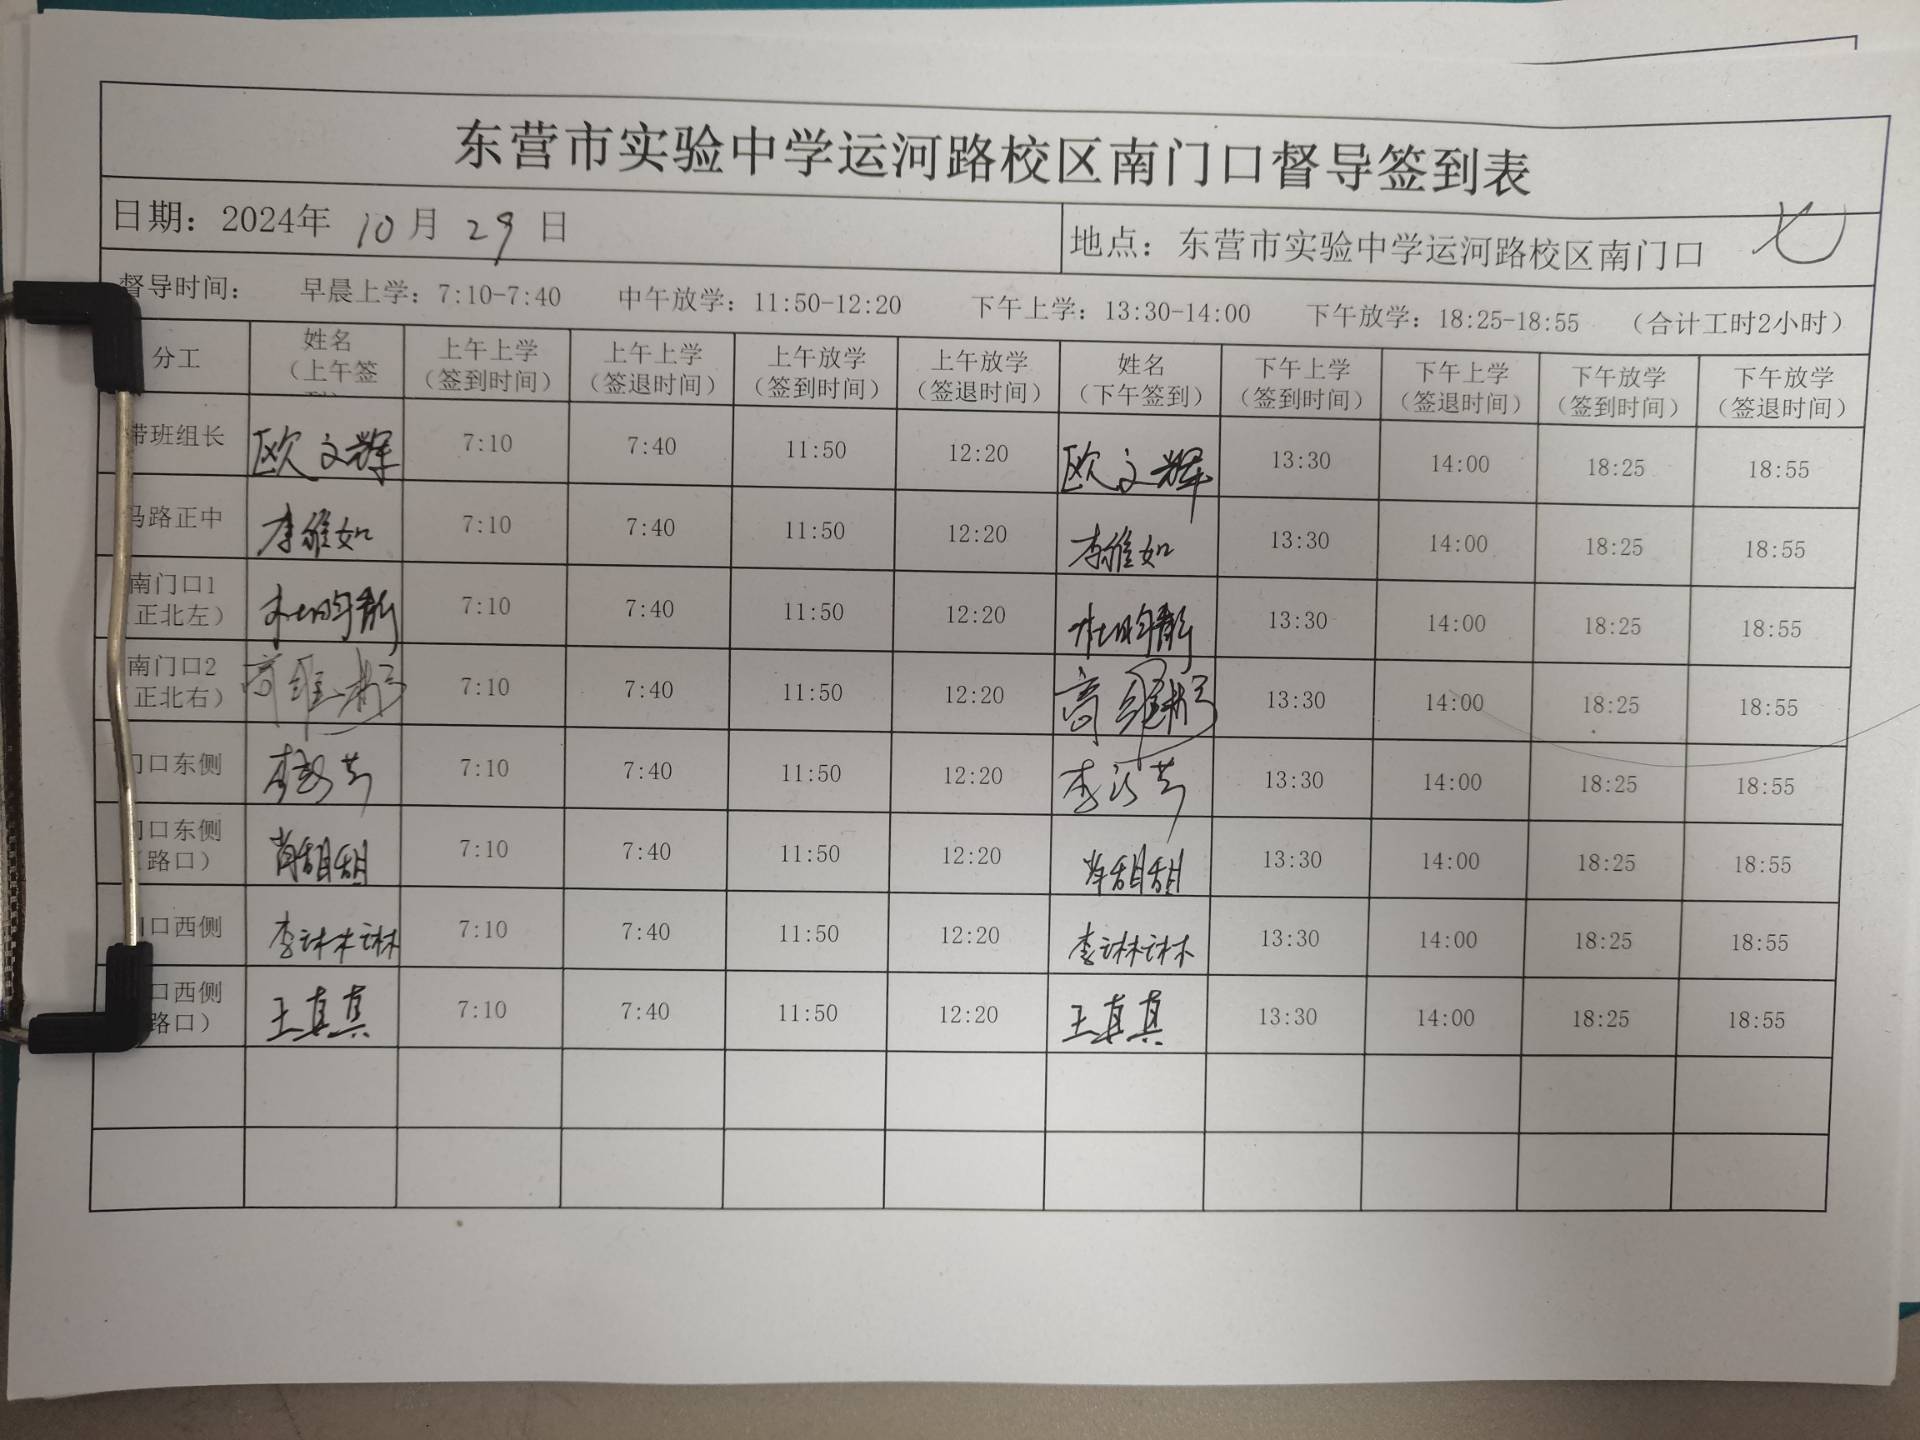 东营市实验中学运河路校区南门口督导签到表
日期：2024年 10 月 29 日 地点：东营市实验中学运河路校区南门口 七
督导时间： 早晨上学：7:10-7:40 中午放学：11:50-12:20 下午上学：13:30-14:00 下午放学：18:25-18:55 （合计工时2小时）
分工 姓名 上午上学 上午上学 上午放学 上午放学 姓名 下午上学 下午上学 下午放学 下午放学
（上午签 （签到时间） （签退时间） （签到时间） （签退时间） （下午签到） （签到时间） （签退时间） （签到时间） （签退时间）
带班组长 欧文辉 7:10 7:40 11:50 12:20 欧文辉 13:30 14:00 18:25 18:55
马路正中 李雅如 7:10 7:40 11:50 12:20 李雅如 13:30 14:00 18:25 18:55
南门口1
（正北左） 杜昀静 7:10 7:40 11:50 12:20 杜昀静 13:30 14:00 18:25 18:55
南门口2
（正北右） 7:10 7:40 11:50 12:20 13:30 14:00 18:25 18:55
门口东侧 7:10 7:40 11:50 12:20 13:30 14:00 18:25 18:55
门口东侧
（路口） 肖甜甜 7:10 7:40 11:50 12:20 肖甜甜 13:30 14:00 18:25 18:55
门口西侧 李琳琳 7:10 7:40 11:50 12:20 李琳琳 13:30 14:00 18:25 18:55
口西侧
路口） 王真真 7:10 7:40 11:50 12:20 王真真 13:30 14:00 18:25 18:55